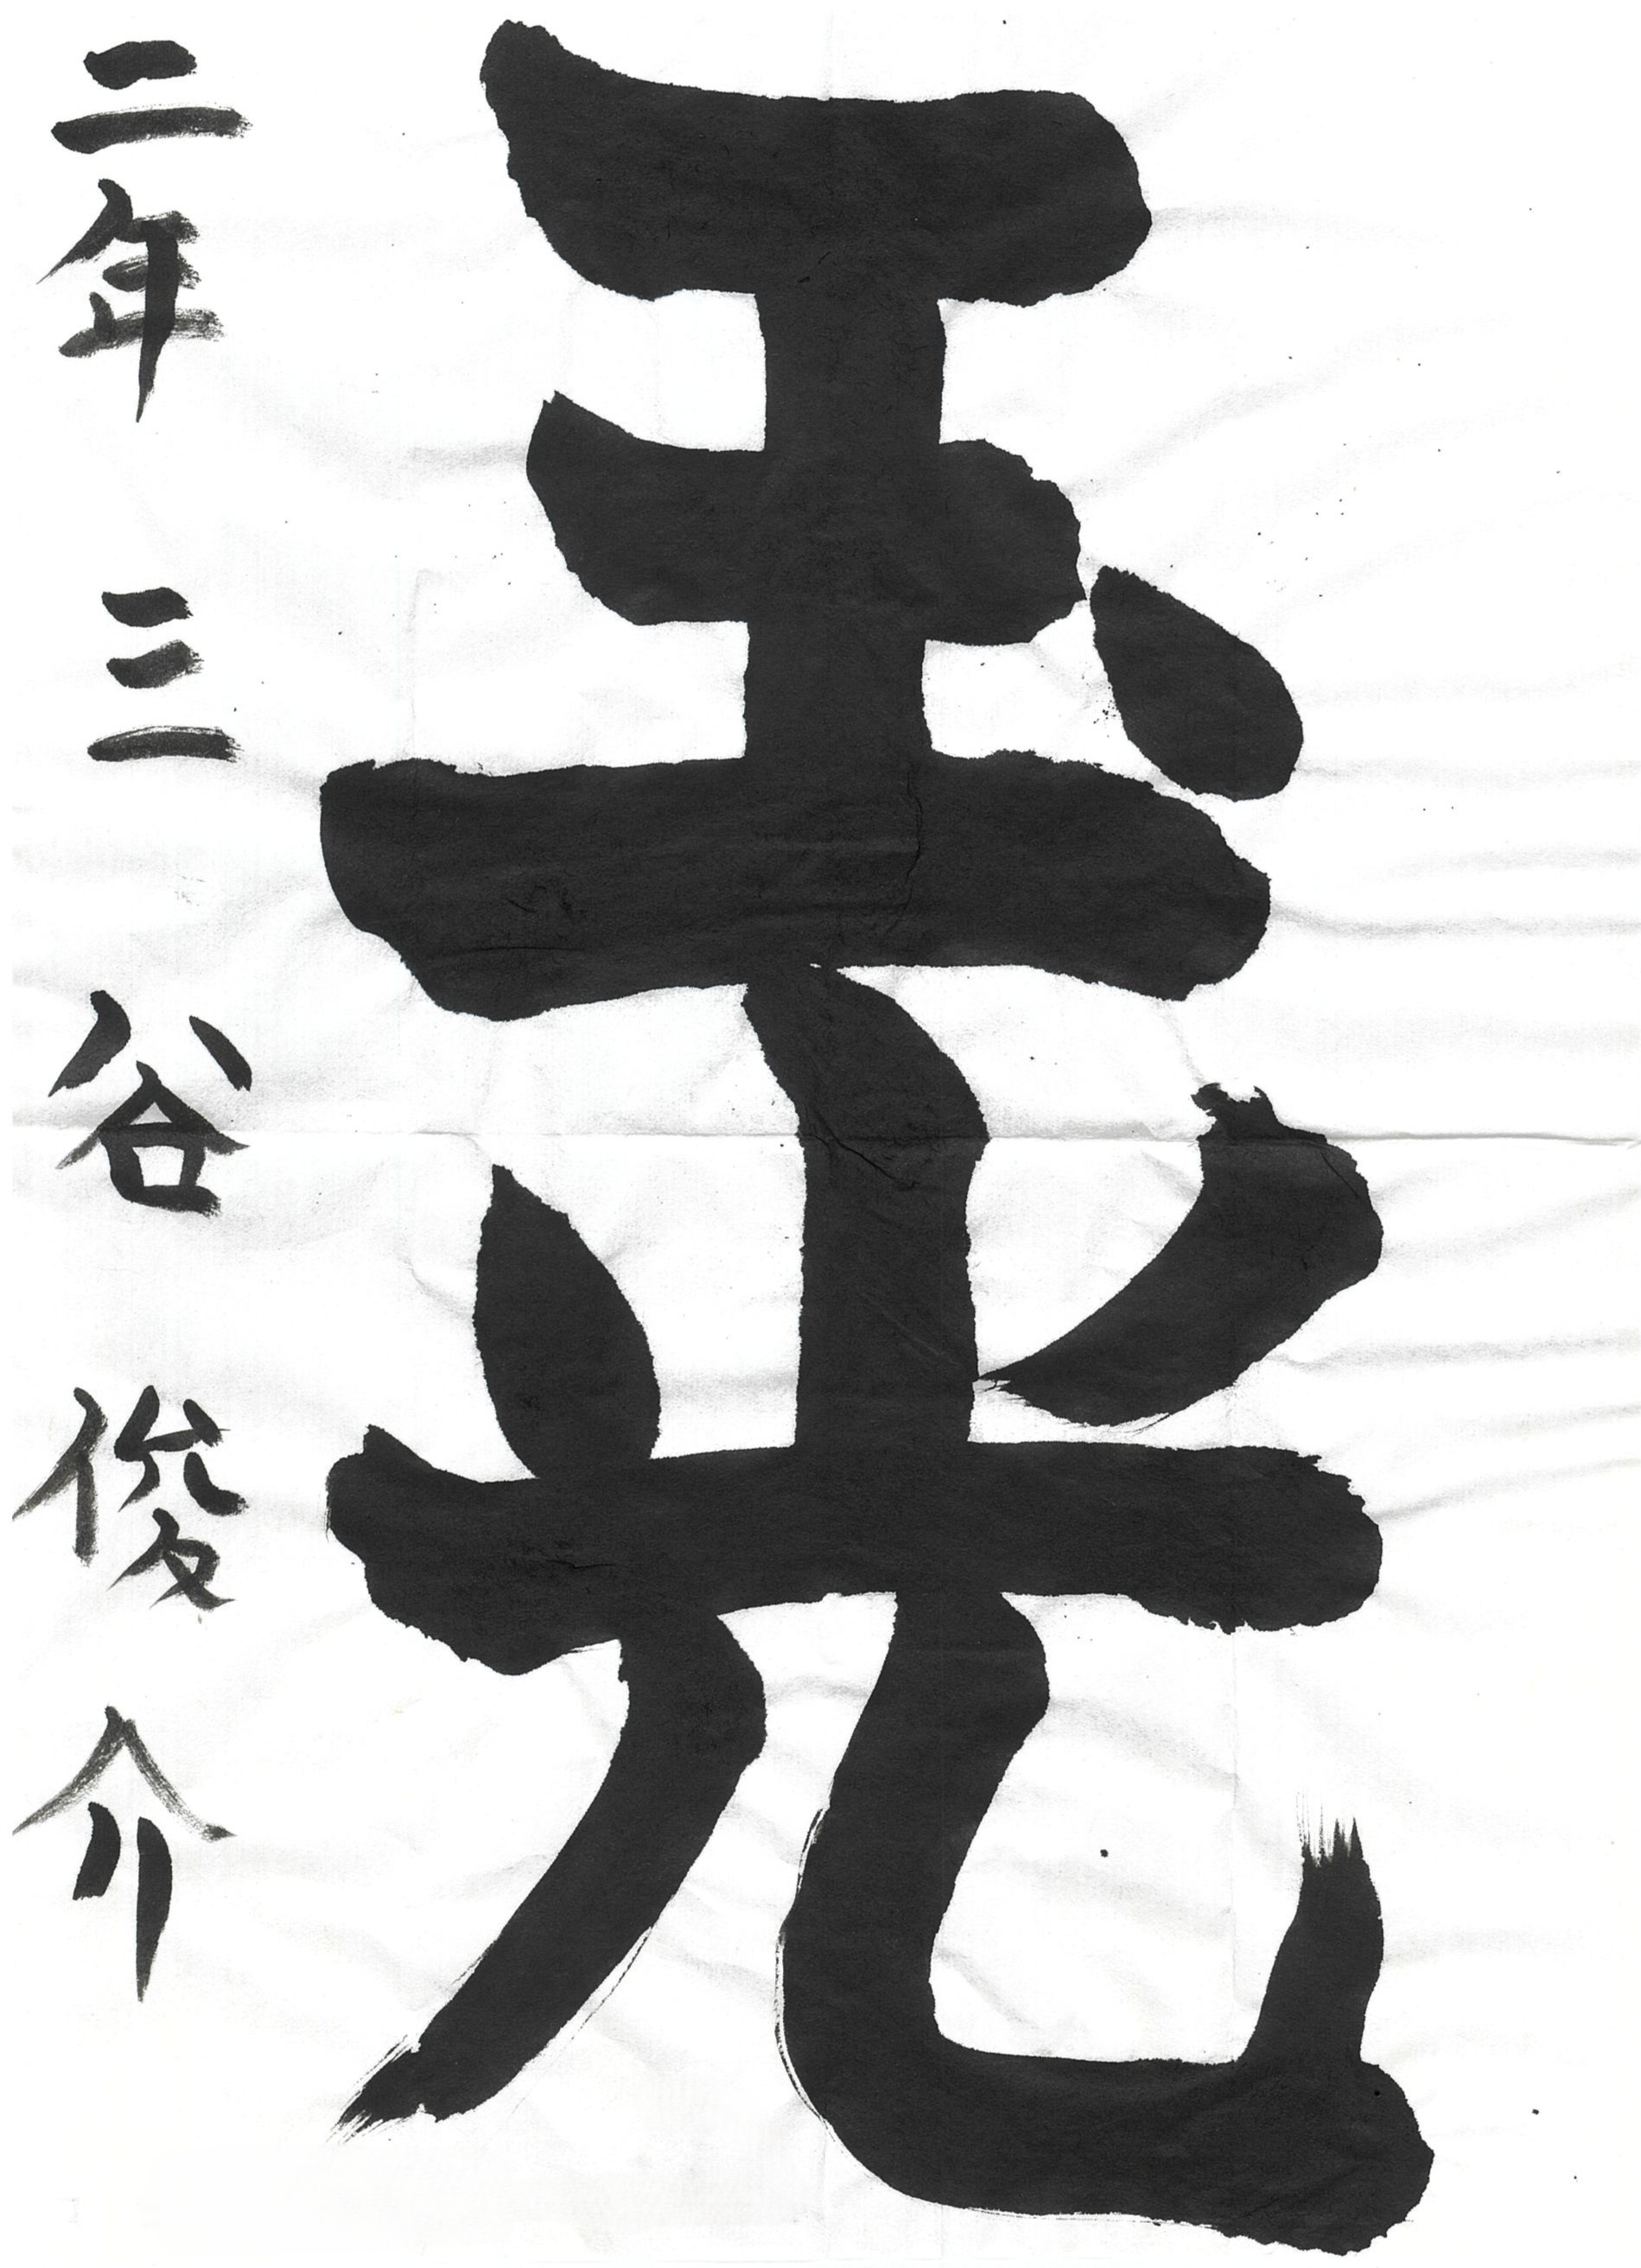 玉光
二年 三谷 俊介